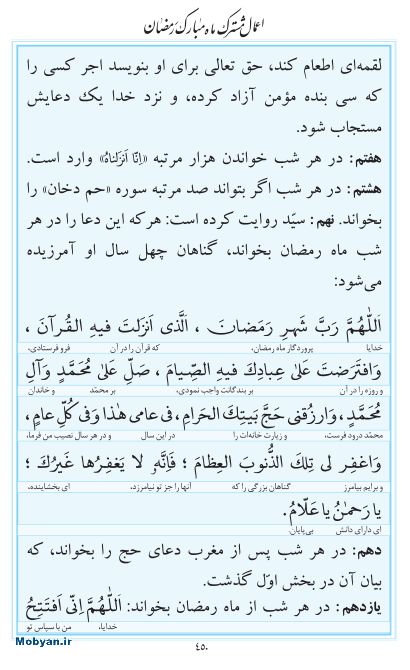 اعمال مشترک ماه مبارک رمضان
لقمه‌ای اطعام کند، حق تعالی برای او بنویسد اجر کسی را
که سی بنده مؤمن آزاد کرده، و نزد خدا یك دعایش
مستجاب شود.
هفتم: در هر شب خواندن هزار مرتبه «اِنّا اَنْزَلْناهُ» وارد است.
هشتم: در هر شب اگر بتواند صد مرتبه سوره «حم دخان» را
بخواند. نهم: سیّد روایت کرده است: هرکه این دعا را در هر
شب ماه رمضان بخواند، گناهان چهل سال او آمرزیده
می‌شود:
اَللّٰهُمَّ رَبَّ شَهْرِ رَمَضانَ ، اَلَّذی اَنْزَلْتَ فیهِ الْقُرْآنَ ،
خدایا پروردگار ماه رمضان، که قرآن را در آن فرو فرستادی،
وَافْتَرَضْتَ عَلیٰ عِبادِكَ فیهِ الصِّیامَ ، صَلِّ عَلیٰ مُحَمَّدٍ وَآلِ
و روزه را در آن بر بندگانت واجب نمودی، بر محمّد و خاندان
مُحَمَّدٍ، وَارْزُقْنی حَجَّ بَیْتِكَ الْحَرامِ، فی عامی هٰذا وَفی کُلِّ عامٍ،
محمّد درود فرست، و زیارت خانه‌ات را در این سال و در هر سال نصیب من فرما،
وَاغْفِرْ لی تِلْكَ الذُّنُوبَ الْعِظامَ ؛ فَاِنَّهُ لا یَغْفِرُها غَیْرُكَ ؛
و برایم بیامرز گناهان بزرگی را که آنها را جز تو نیامرزد، ای بخشاینده،
یا رَحْمٰنُ یا عَلّامُ.
ای دارای دانش بی‌پایان.
دهم: در هر شب پس از مغرب دعای حج را بخواند، که
بیان آن در بخش اوّل گذشت.
یازدهم: در هر شب از ماه رمضان بخواند: اَللّٰهُمَّ اِنّی اَفْتَتِحُ
خدایا، من با سپاس تو
٤٥٠
Mobyan.ir